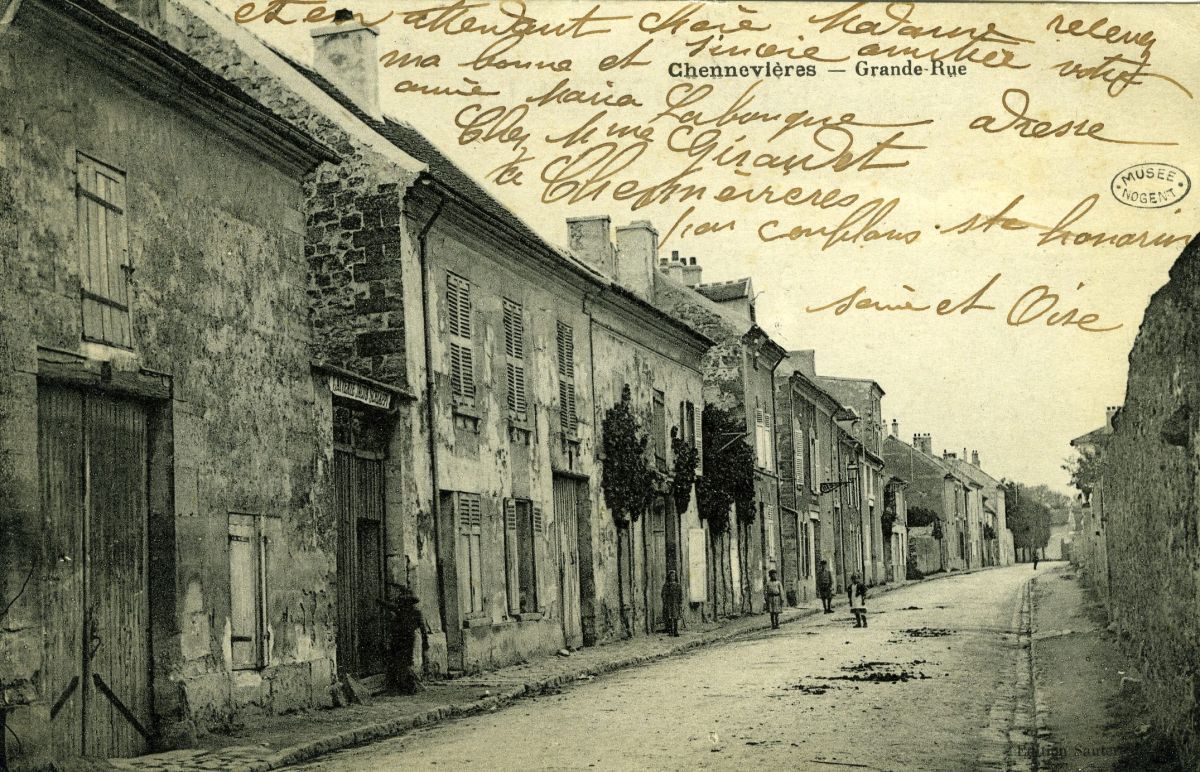 et en attendant chère Madame relevez
ma bonne et sincère amitiée votre
amie Maria Labouque adresse
Chez Mme Giraudet
Chennevieres
par conflans ste honorine
Seine et Oise
Chennevières — Grande-Rue
MUSEE
NOGENT
Edition Saute